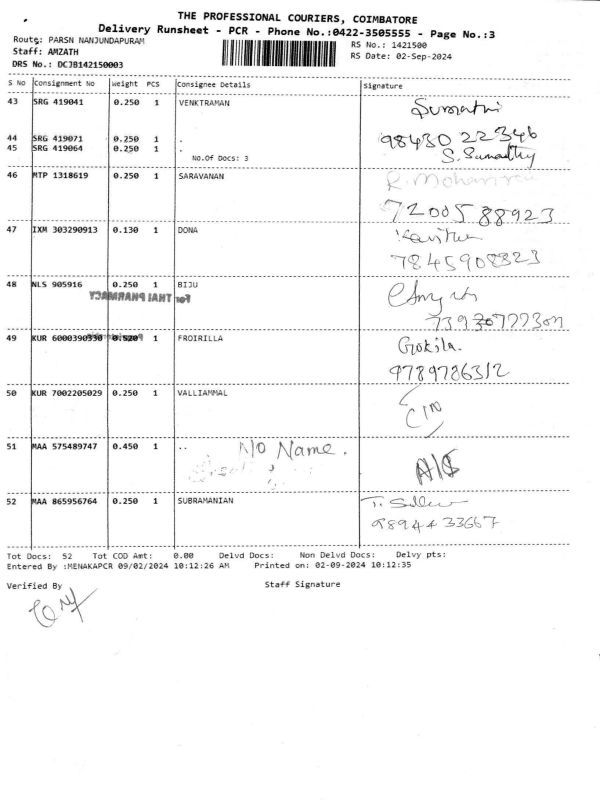 THE PROFESSIONAL COURIERS, COIMBATORE
Delivery Runsheet - PCR - Phone No.:0422-3505555 - Page No.:3
Route: PARSN NANJUNDAPURAM
RS No.: 1421500
Staff: AMZATH
RS Date: 02-Sep-2024
DRS No.: DCJB142150003
S No Consignment No Weight PCS Consignee Details Signature
43 SRG 419041 0.250 1 VENKTRAMAN Sumathi
44 SRG 419071 0.250 1 . 98430 22346
45 SRG 419064 0.250 1 . S. Sumathy
No.Of Docs: 3
46 MTP 1318619 0.250 1 SARAVANAN
7200588923
47 IXM 303290913 0.130 1 DONA Kavitha
7845908823
48 NLS 905916 0.250 1 BIJU
For THAI PHARMACY
49 KUR 6000390930 0.520 1 FROIRILLA Gokila.
9789786312
50 KUR 7002205029 0.250 1 VALLIAMMAL
51 MAA 575489747 0.450 1 .. No Name. A/S
52 MAA 865956764 0.250 1 SUBRAMANIAN
9894433667
Tot Docs: 52 Tot COD Amt: 0.00 Delvd Docs: Non Delvd Docs: Delvy pts:
Entered By :MENAKAPCR 09/02/2024 10:12:26 AM Printed on: 02-09-2024 10:12:35
Verified By Staff Signature